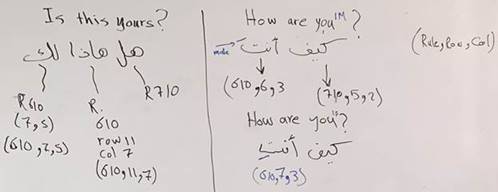 Is this yours?
هل هاذا لك
R610
(7,5)
(610,7,5)
R.
610
row 11
col 7
(610,11,7)
R710
How are you 1M ?
كيف أنتَ
male
(610,6,3
(710,5,2)
How are you ?
كيف أنتِ
(610,7,3)
(Rule, Row, Col)